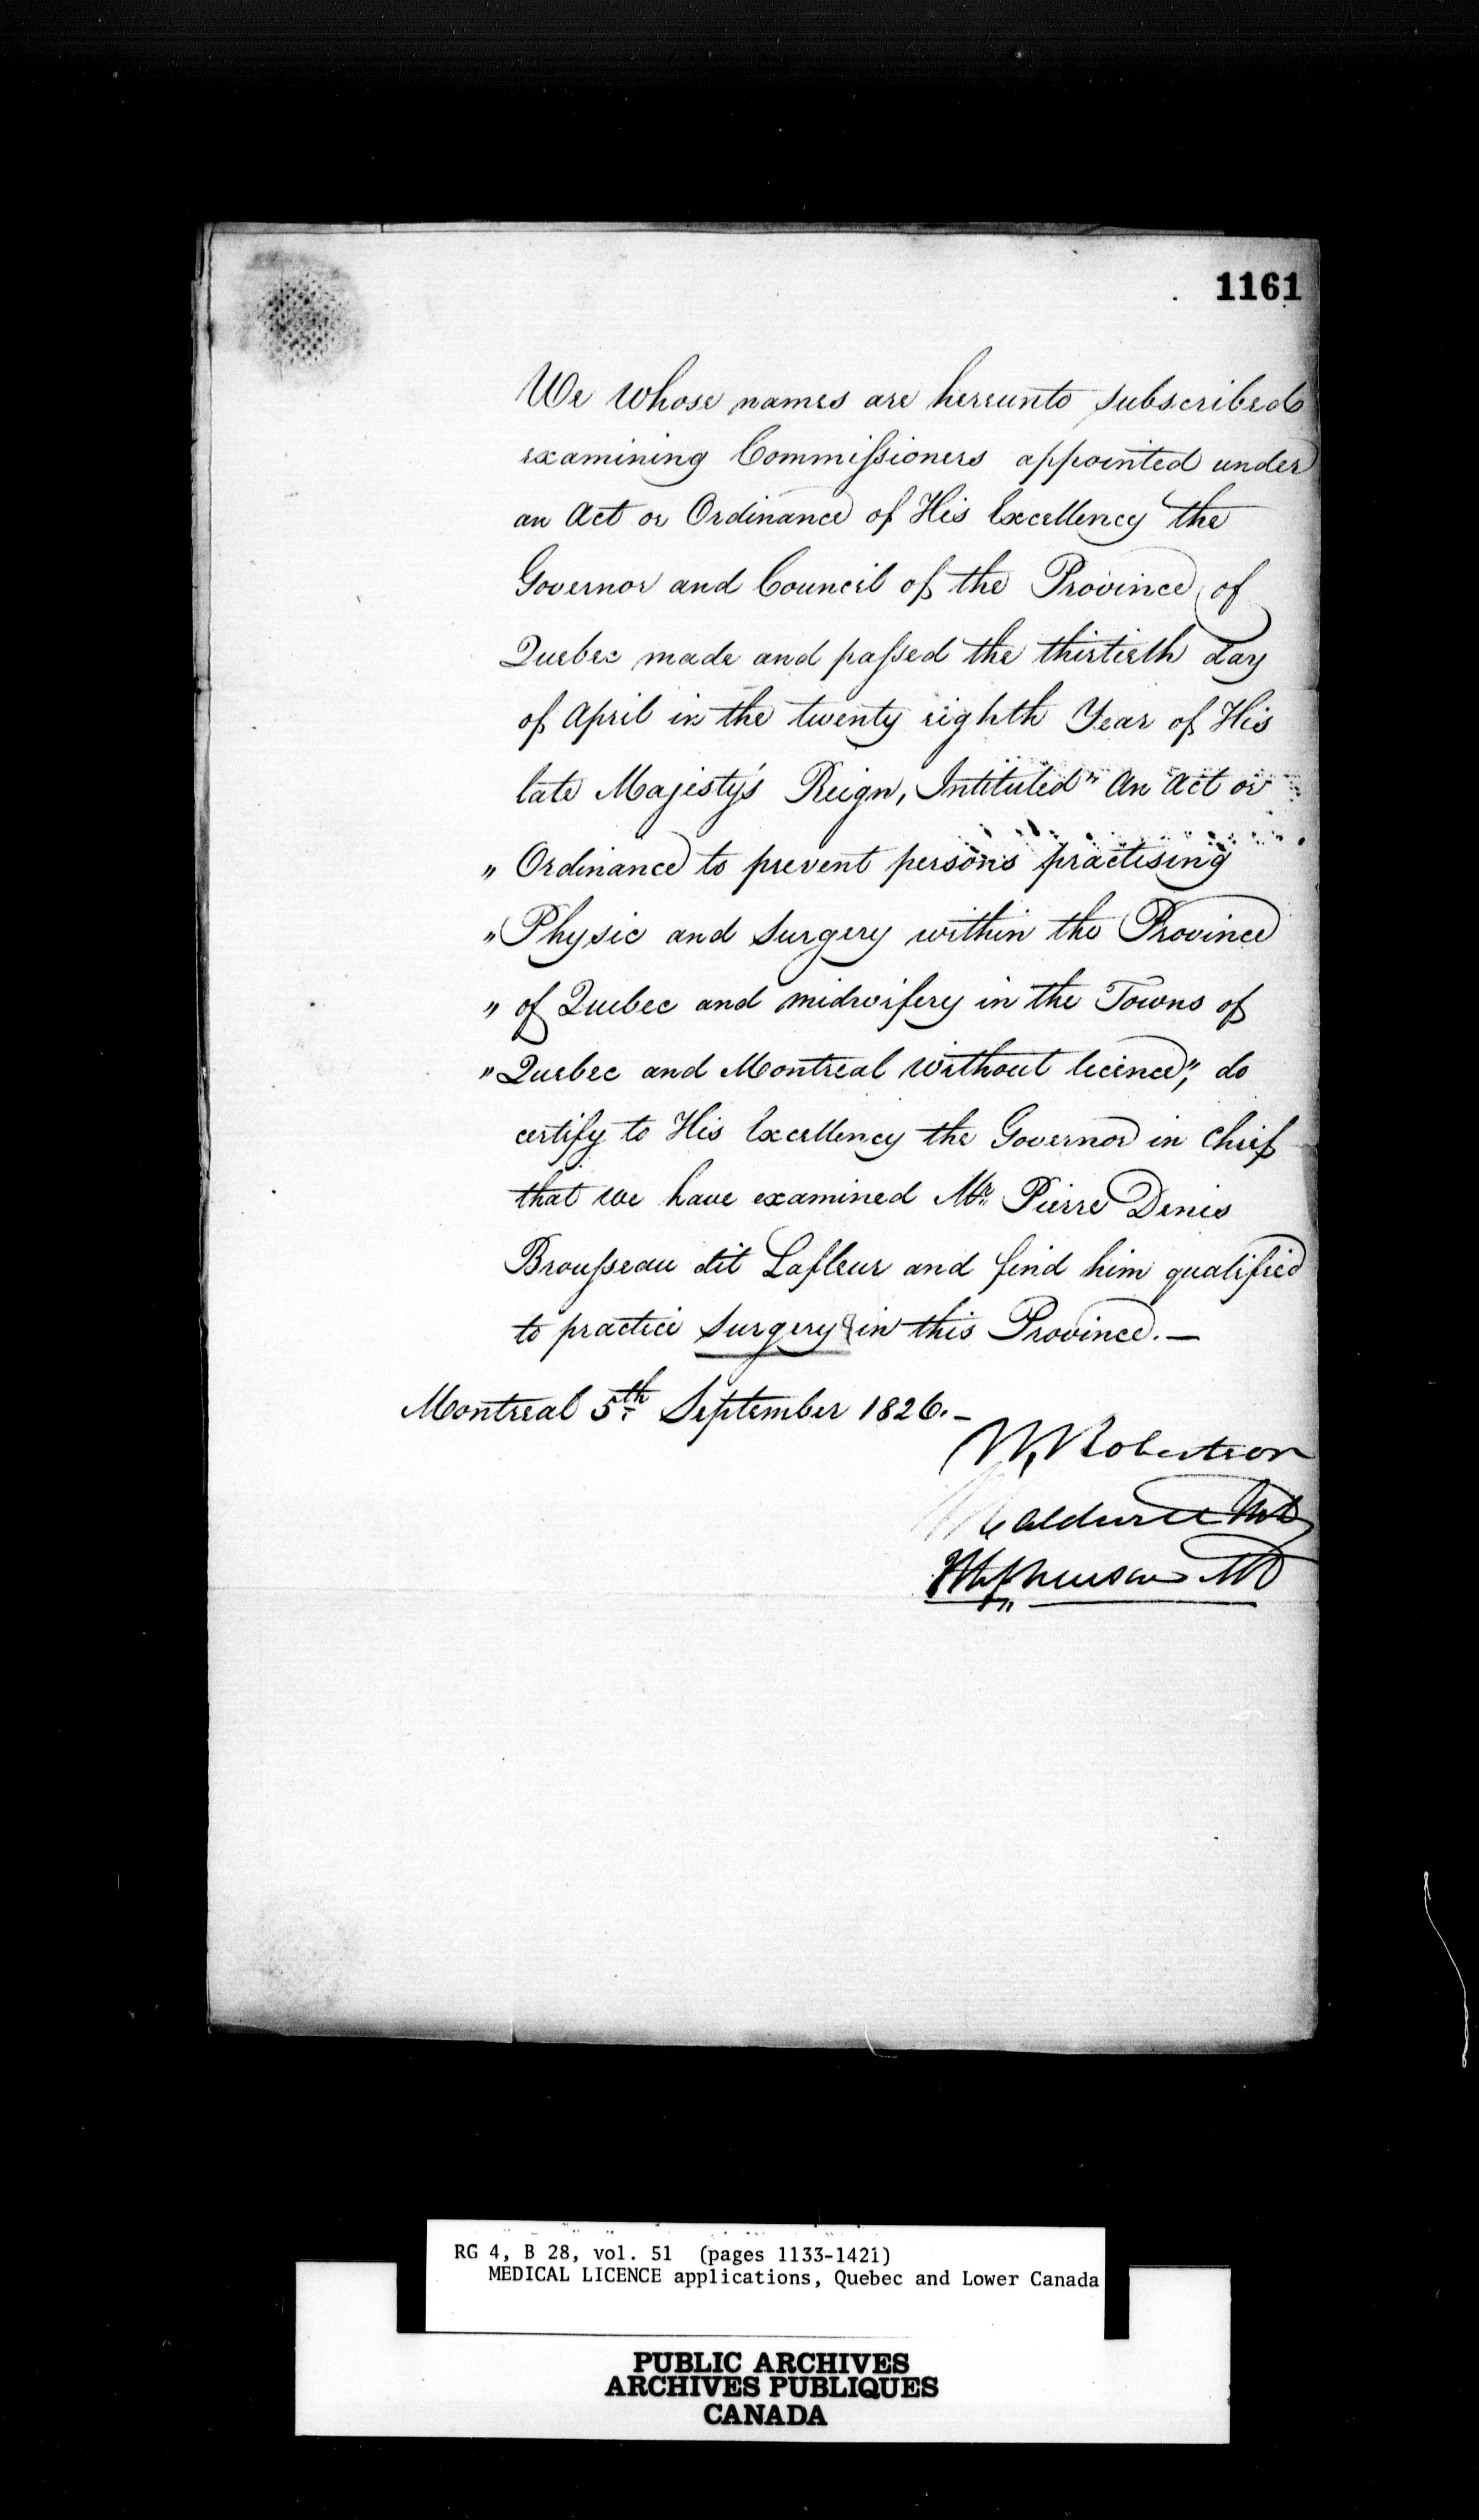 1161
We whose names are hereunto subscribed
examining Commissioners appointed under
an Act or Ordinance of His Excellency the
Governor and Council of the Province of
Quebec made and passed the thirtieth day
of April in the twenty eighth Year of His
late Majesty's Reign, Intituled " An Act or
" Ordinance to prevent persons practising
" Physic and Surgery within the Province
" of Quebec and midwifery in the Towns of
" Quebec and Montreal without licence", do
certify to His Excellency the Governor in Chief
that we have examined Mr. Pierre Denis
Brousseau dit Lafleur and find him qualified
to practice Surgery in this Province. —
Montreal 5th September 1826. —
W. Robertson
Caldwell MD
MD
RG 4, B 28, vol. 51 (pages 1133-1421)
MEDICAL LICENCE applications, Quebec and Lower Canada
PUBLIC ARCHIVES
ARCHIVES PUBLIQUES
CANADA